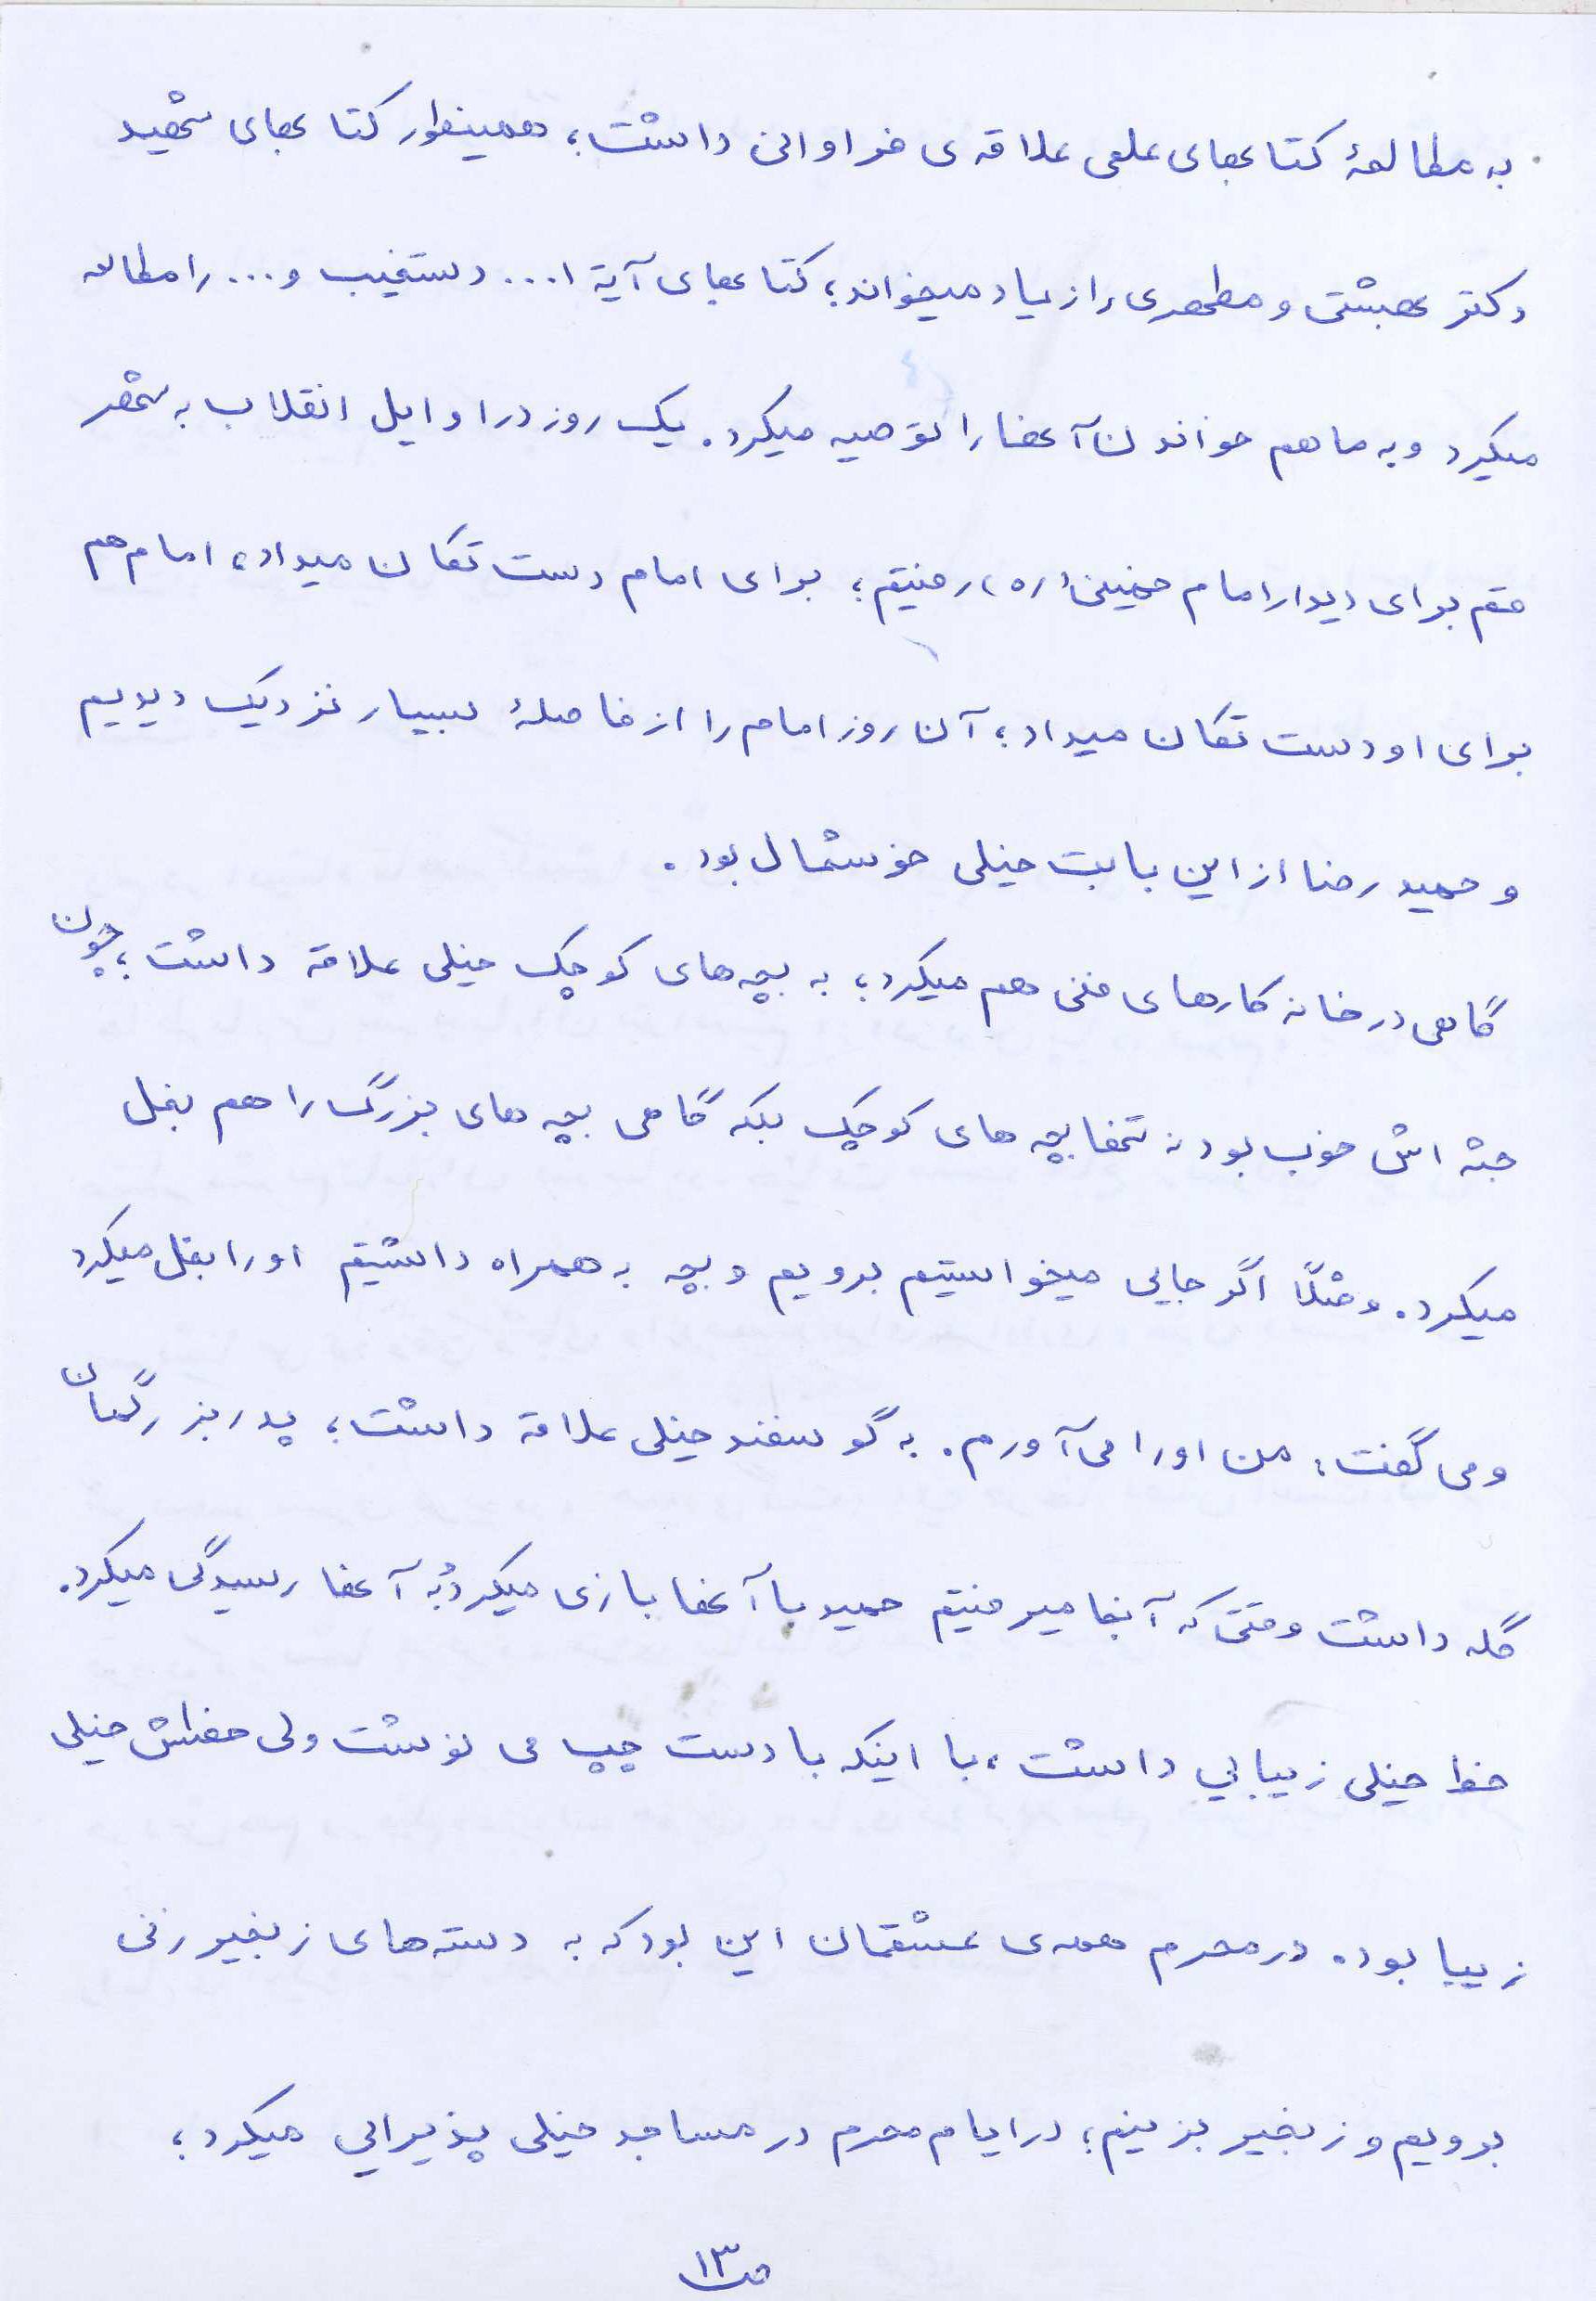 به مطالعهٔ کتابهای علمی علاقه‌ی فراوانی داشت؛ همینطور کتابهای شهید
دکتر بهشتی و مطهری را زیاد میخواند؛ کتابهای آیة ا... دستغیب و... را مطالعه
میکرد و به ما هم خواندن آنها را توصیه میکرد. یک روز در اوایل انقلاب به شهر
قم برای دیدار امام خمینی (ره) رفتیم؛ برای امام دست تکان میداد، امام هم
برای او دست تکان میداد؛ آن روز امام را از فاصلهٔ بسیار نزدیک دیدیم
و حمیدرضا از این بابت خیلی خوشحال بود.
گاهی در خانه کارهای فنی هم میکرد؛ به بچه‌های کوچک خیلی علاقه داشت؛ چون
جثه اش خوب بود نه تنها بچه های کوچک بلکه گاهی بچه های بزرگ را هم بغل
میکرد. و مثلاً اگر جایی میخواستیم برویم و بچه به همراه داشتیم او را بغل میکرد
و می گفت: من او را می آورم. به گوسفند خیلی علاقه داشت؛ پدربزرگمان
گله داشت وقتی که آنجا میرفتیم حمید با آنها بازی میکرد و به آنها رسیدگی میکرد.
خط خیلی زیبایي داشت، با اینکه با دست چپ می نوشت ولی خطش خیلی
زیبا بود. در محرم همه‌ی عشقمان این بود که به دسته‌های زنجیرزنی
برویم و زنجیر بزنیم؛ در ایام محرم در مساجد خیلی پذیرایي میکرد؛
ص۱۳